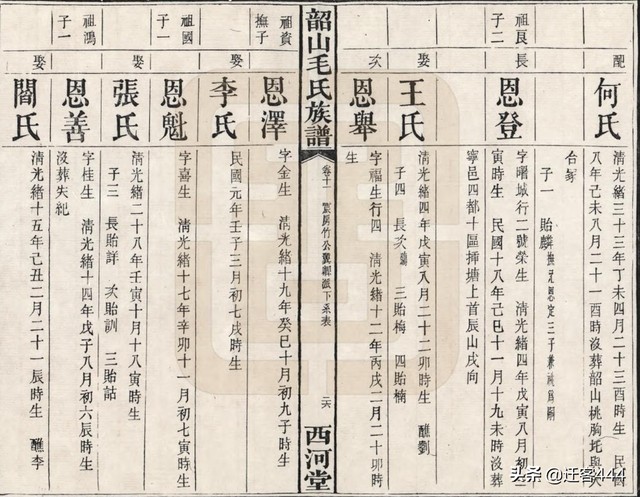 配
何氏
清光緒三十三年丁未四月二十三酉時生 民國
八年己未八月二十一酉時沒葬韶山桃胸坨與夫
合冢
子一 貽麟 撫元恩定三子兼祧為嗣
祖良
子二
長
恩登
字曙城行二號榮生 清光緒四年戊寅八月初二
寅時生 民國十八年己巳十一月十九未時沒葬
寧邑四都十區掃塘上首辰山戌向
娶
王氏
清光緒四年戊寅八月二十二卯時生 醮劉
子四 長次殤 三貽梅 四貽楠
次
恩舉
字福生行四 清光緒十二年丙戌二月二十卯時
生
韶山毛氏族譜
卷十一 震房竹公 派下系表
二六
西河堂
祖資
撫子
恩澤
字金生 清光緒十九年癸巳十月初九子時生
娶
李氏
民國元年壬子三月初七戌時生
祖國
子一
恩魁
字喜生 清光緒十七年辛卯十一月初七寅時生
娶
張氏
清光緒二十八年壬寅十月十八寅時生
子三 長貽詳 次貽訓 三貽詁
祖鴻
子一
恩善
字桂生 清光緒十四年戊子八月初六辰時生
沒葬失紀
娶
閻氏
清光緒十五年己丑二月二十一辰時生 醮李
头条 @迁客444